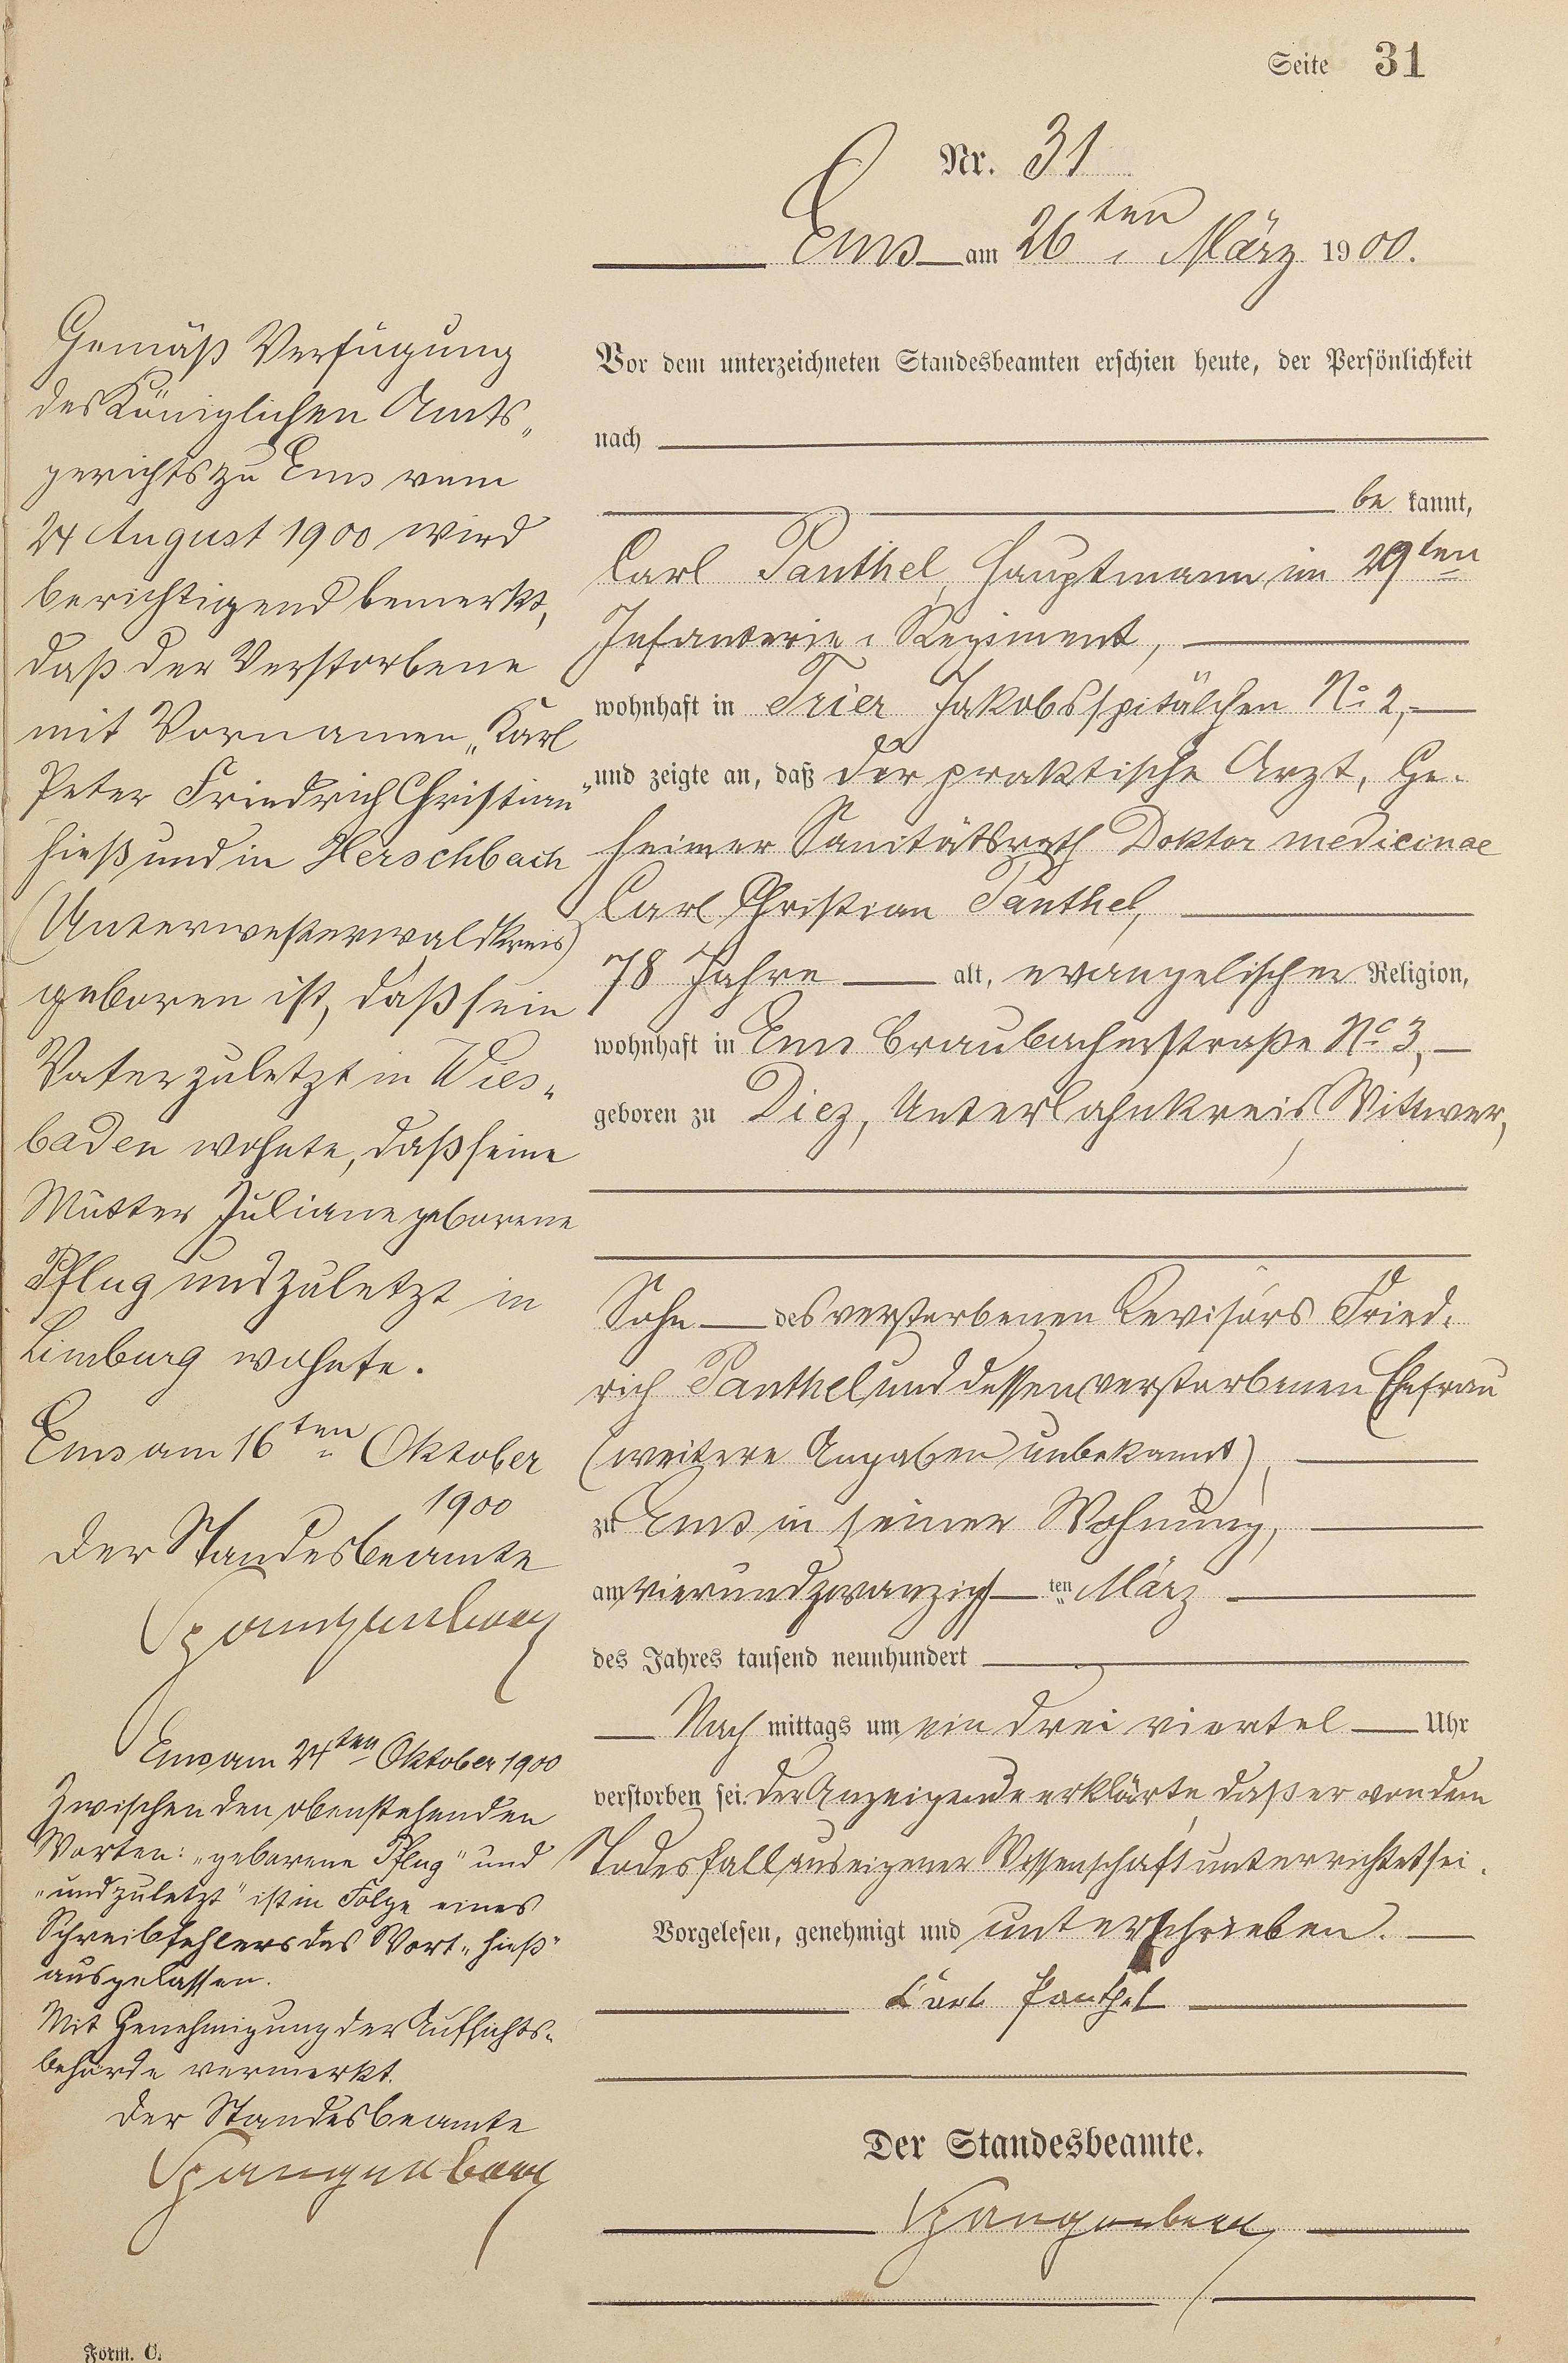 Seite 31
Nr. 31
Ems am 26ten März 1900.
Vor dem unterzeichneten Standesbeamten erschien heute, der Persönlichkeit
nach
be kannt,
Carl Panthel, Hauptmann im 29ten
Infanterie-Regiment,
wohnhaft in Trier Jakobsspitälchen No 2,
und zeigte an, daß der praktische Arzt, Ge-
heimer Sanitätsrath Doktor medicinae
Carl Christian Panthel,
78 Jahre alt, evangelischer Religion,
wohnhaft in Ems Braubacherstraße No 3,
geboren zu Diez, Unterlahnkreis, Wittwer,
Sohn des verstorbenen Revisors Fried-
rich Panthel und dessen verstorbenen Ehefrau
(weitere Angaben unbekannt),
zu Ems in seiner Wohnung,
am vierundzwanzigsten März
des Jahres tausend neunhundert
Nach mittags um ein drei viertel Uhr
verstorben sei. Der Anzeigende erklärte, daß er von dem
Todesfall aus eigener Wissenschaft unterrichtet sei.
Vorgelesen, genehmigt und unterschrieben.
Karl Panthel
Der Standesbeamte.
Spangenberg
Gemäß Verfügung
des Königlichen Amts-
gerichts zu Ems vom
24 August 1900 wird
berichtigend bemerkt,
daß der Verstorbene
mit Vornamen „Karl
Peter Friedrich Christian“
hieß und in Herschbach
(Unterwesterwaldkreis)
geboren ist, daß sein
Vater zuletzt in Wies-
baden wohnte, daß seine
Mutter Juliane geborene
Pflug und zuletzt in
Limburg wohnte.
Ems am 16ten Oktober
1900
Der Standesbeamte
Spangenberg
Ems am 24ten Oktober 1900
Zwischen den obenstehenden
Worten: „geborene Pflug“ und
„und zuletzt“ ist in Folge eines
Schreibfehlers das Wort „hieß“
ausgelassen.
Mit Genehmigung der Aufsichts-
behörde vermerkt.
Der Standesbeamte
Spangenberg
Form. C.